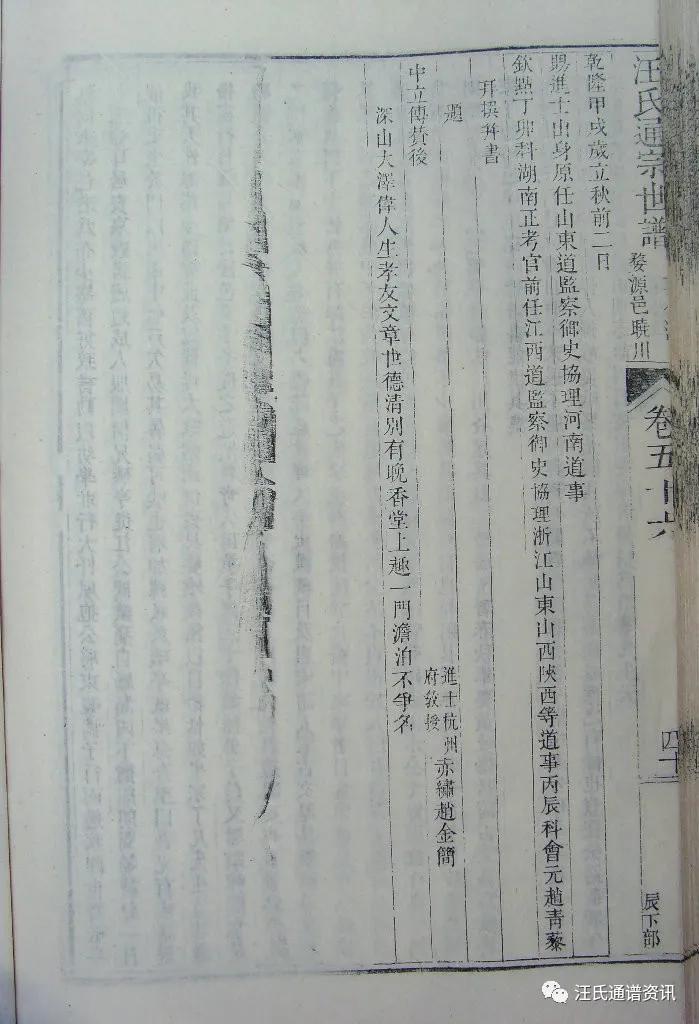 汪氏通宗世譜
婺源邑曉川
卷五十六
四十
辰下部
乾隆甲戌歲立秋前二日
賜進士出身原任山東道監察御史協理河南道事
欽點丁卯科湖南正考官前任江西道監察御史協理浙江山東山西陝西等道事丙辰科會元趙青藜
拜撰并書
題
中立傳贊後
進士杭州
府教授
赤繡趙金簡
深山大澤偉人生孝友文章世德清別有晚香堂上趣一門澹泊不爭名
汪氏通谱资讯